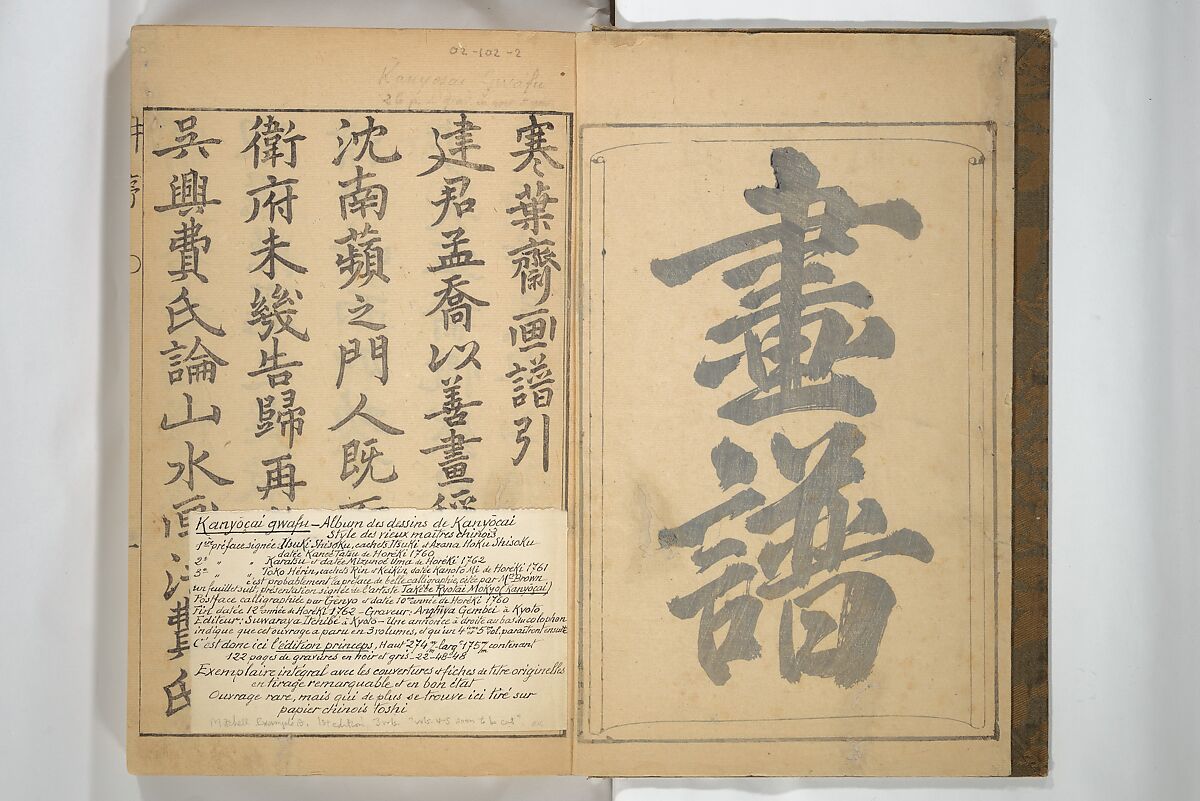 畫譜
02-102-2
Kanyosai Gwafu
寒葉齋画譜引
建君孟喬以善畫
沈南蘋之門人既
衛府未幾告歸再
吳興費氏論山水画
費氏
序
Kanyōçai gwafu – Album des dessins de Kanyōcai
Style des vieux maîtres chinois
1ère préface signée Itsuki Shisoku, cachets Itsuki et Azana Hoku Shisoku
datée Kanoé Tatsu de Horéki 1760
2e " " Karatsu et datée Mizunoé Uma de Horéki 1762
3e " " Toko Hérin, cachets Rin et Keikin, datée Kanoto Mi de Horéki 1761
c'est probablement la préface de belle calligraphie, citée par Mr Brown
un feuillet suit, présentation signée de l'artiste Takébé Ryotai Mokyo (Kanyōçai)
Postface calligraphiée par Genyo et datée 10e année de Horéki 1760
Fin datée 12e année de Horéki 1762 – Graveur: Anghiya Gembei à Kyoto,
Editeur: Suwaraya Itchibé à Kyoto – Une annonce à droite au bas du colophon
indique que cet ouvrage a paru en 3 volumes, et qu'un 4me et 5e vol. paraîtront ensuite
C'est donc ici l'édition princeps, Haut. 274m/m larg. 175m/m contenant
122 pages de gravures en noir et gris – 22-48-48
Exemplaire intégral avec les couvertures et fiches de titre originelles
en tirage remarquable et en bon état
Ouvrage rare, mais qui de plus se trouve ici tiré sur
papier chinois toshi
Mitchell example B. 1st edition 3 vols. "vols. 4-5 soon to be cut"